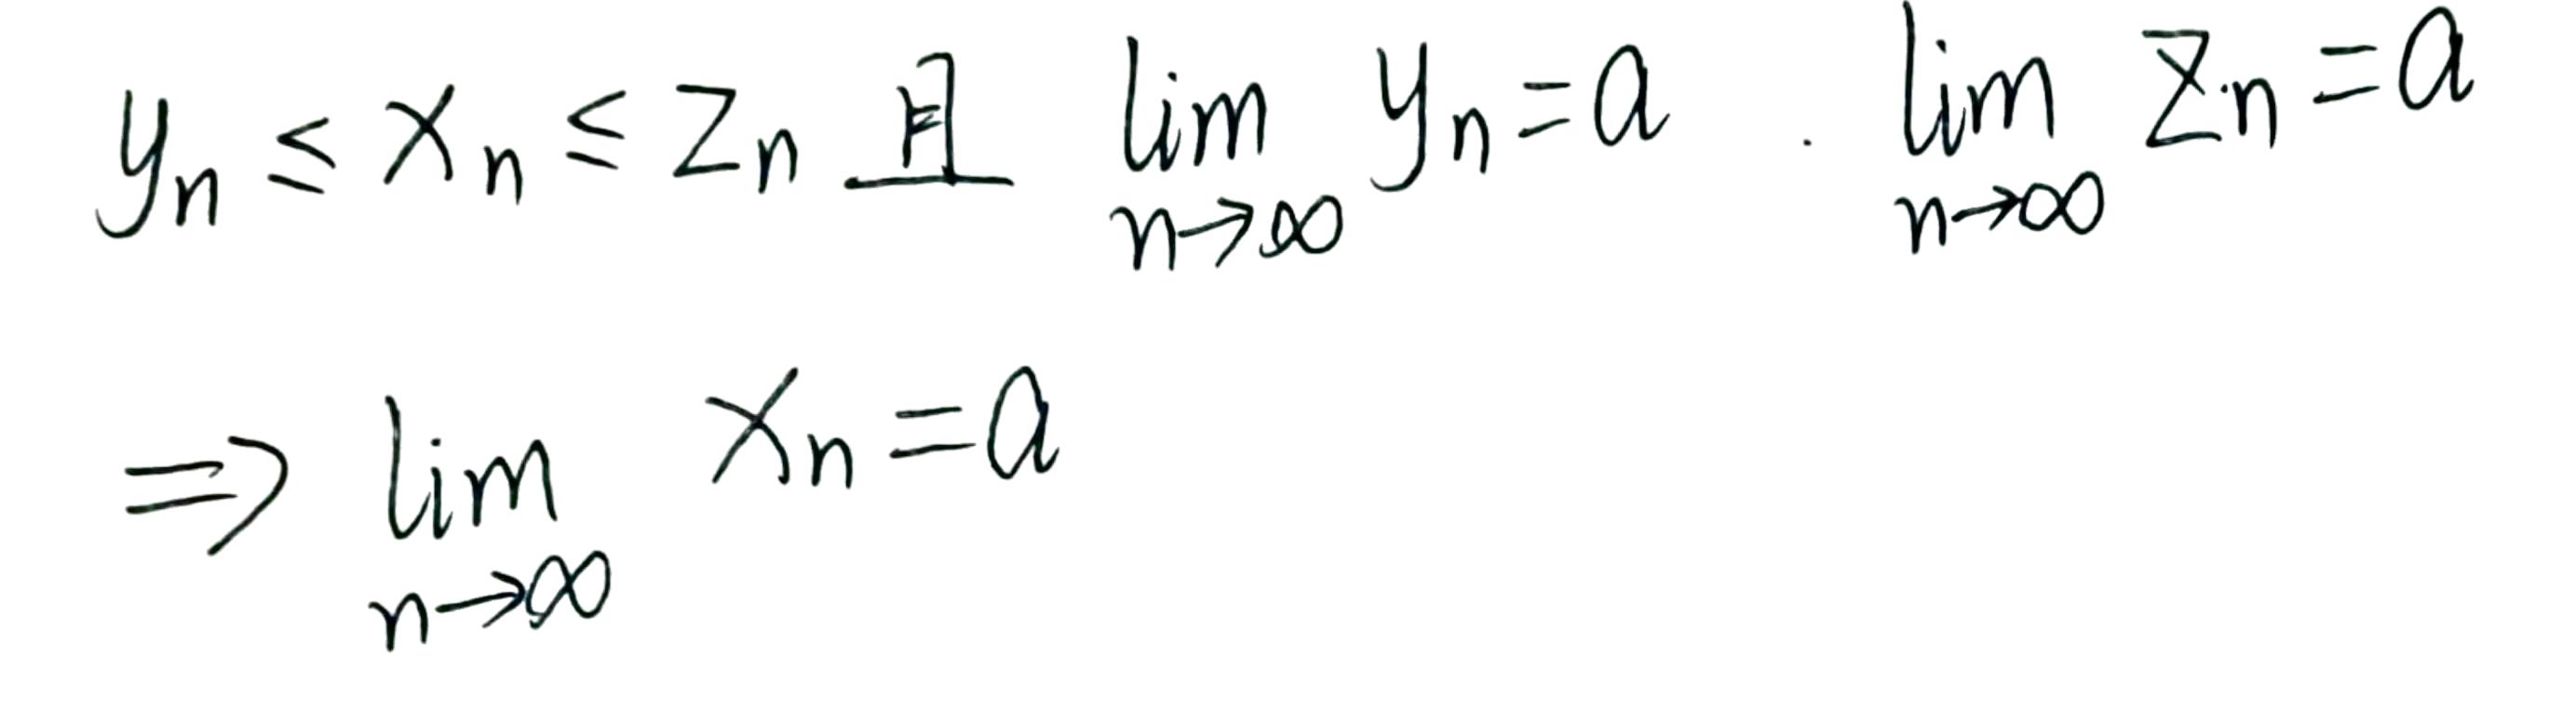 yₙ ≤ xₙ ≤ zₙ 且 lim_{n→∞} yₙ = a . lim_{n→∞} zₙ = a
⇒ lim_{n→∞} xₙ = a